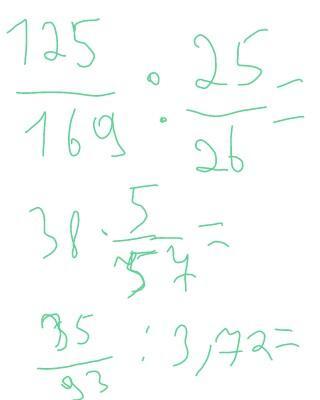 125/169 : 25/26 =
38 · 5/57 =
35/93 : 3,72 =